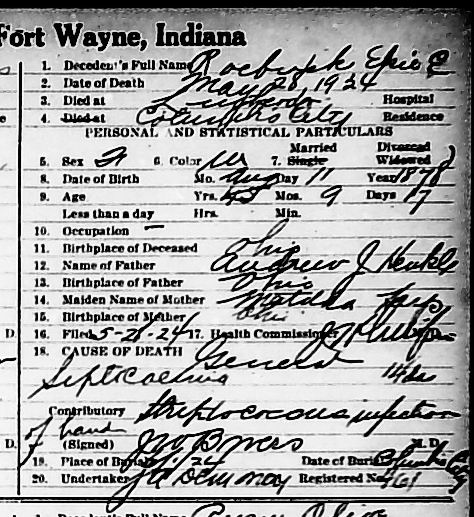 Fort Wayne, Indiana
1. Decedent's Full Name Roebuck Effie E
2. Date of Death May 28, 1924
3. Died at Lutheran Hospital
4. Died at Columbia City Residence
PERSONAL AND STATISTICAL PARTICULARS
Married Divorced
5. Sex F 6. Color W 7. Single Widowed
8. Date of Birth Mo. Aug Day 11 Year 1878
9. Age Yrs. 45 Mos. 9 Days 17
Less than a day Hrs. Min.
10. Occupation —
11. Birthplace of Deceased Ohio
12. Name of Father Andrew J Henkle
13. Birthplace of Father Ohio
14. Maiden Name of Mother Matilda
15. Birthplace of Mother Ohio
D. 16. Filed 5-2-24 17. Health Commissioner
18. CAUSE OF DEATH General
Septocaemia 14 ds
Contributory Streptococcus infection
of hand
D. (Signed) M. D.
19. Place of Burial Date of Burial Columbia City
20. Undertaker J A DeMoney Registered No. 461
1. Decedent's Full Name